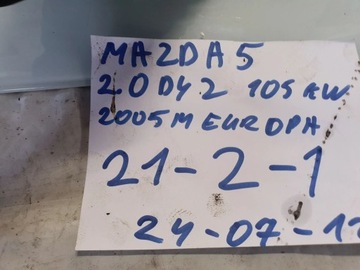 MAZDA 5
2.0 DY 2 105 KW
2005 M EUROPA
21-2-1
24-07-1